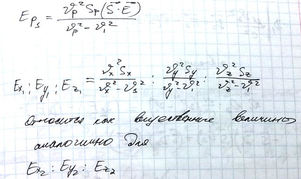 E_{ps} = \frac{v_p^2 S_p (\vec{S} \cdot \vec{E})}{v_p^2 - v_1^2}
E_{x_1} : E_{y_1} : E_{z_1} = \frac{v_x^2 S_x}{v_x^2 - v_1^2} : \frac{v_y^2 S_y}{v_y^2 - v_1^2} : \frac{v_z^2 S_z}{v_z^2 - v_1^2}
относятся как вещественные величины
аналогично для
E_{x_2} : E_{y_2} : E_{z_2}